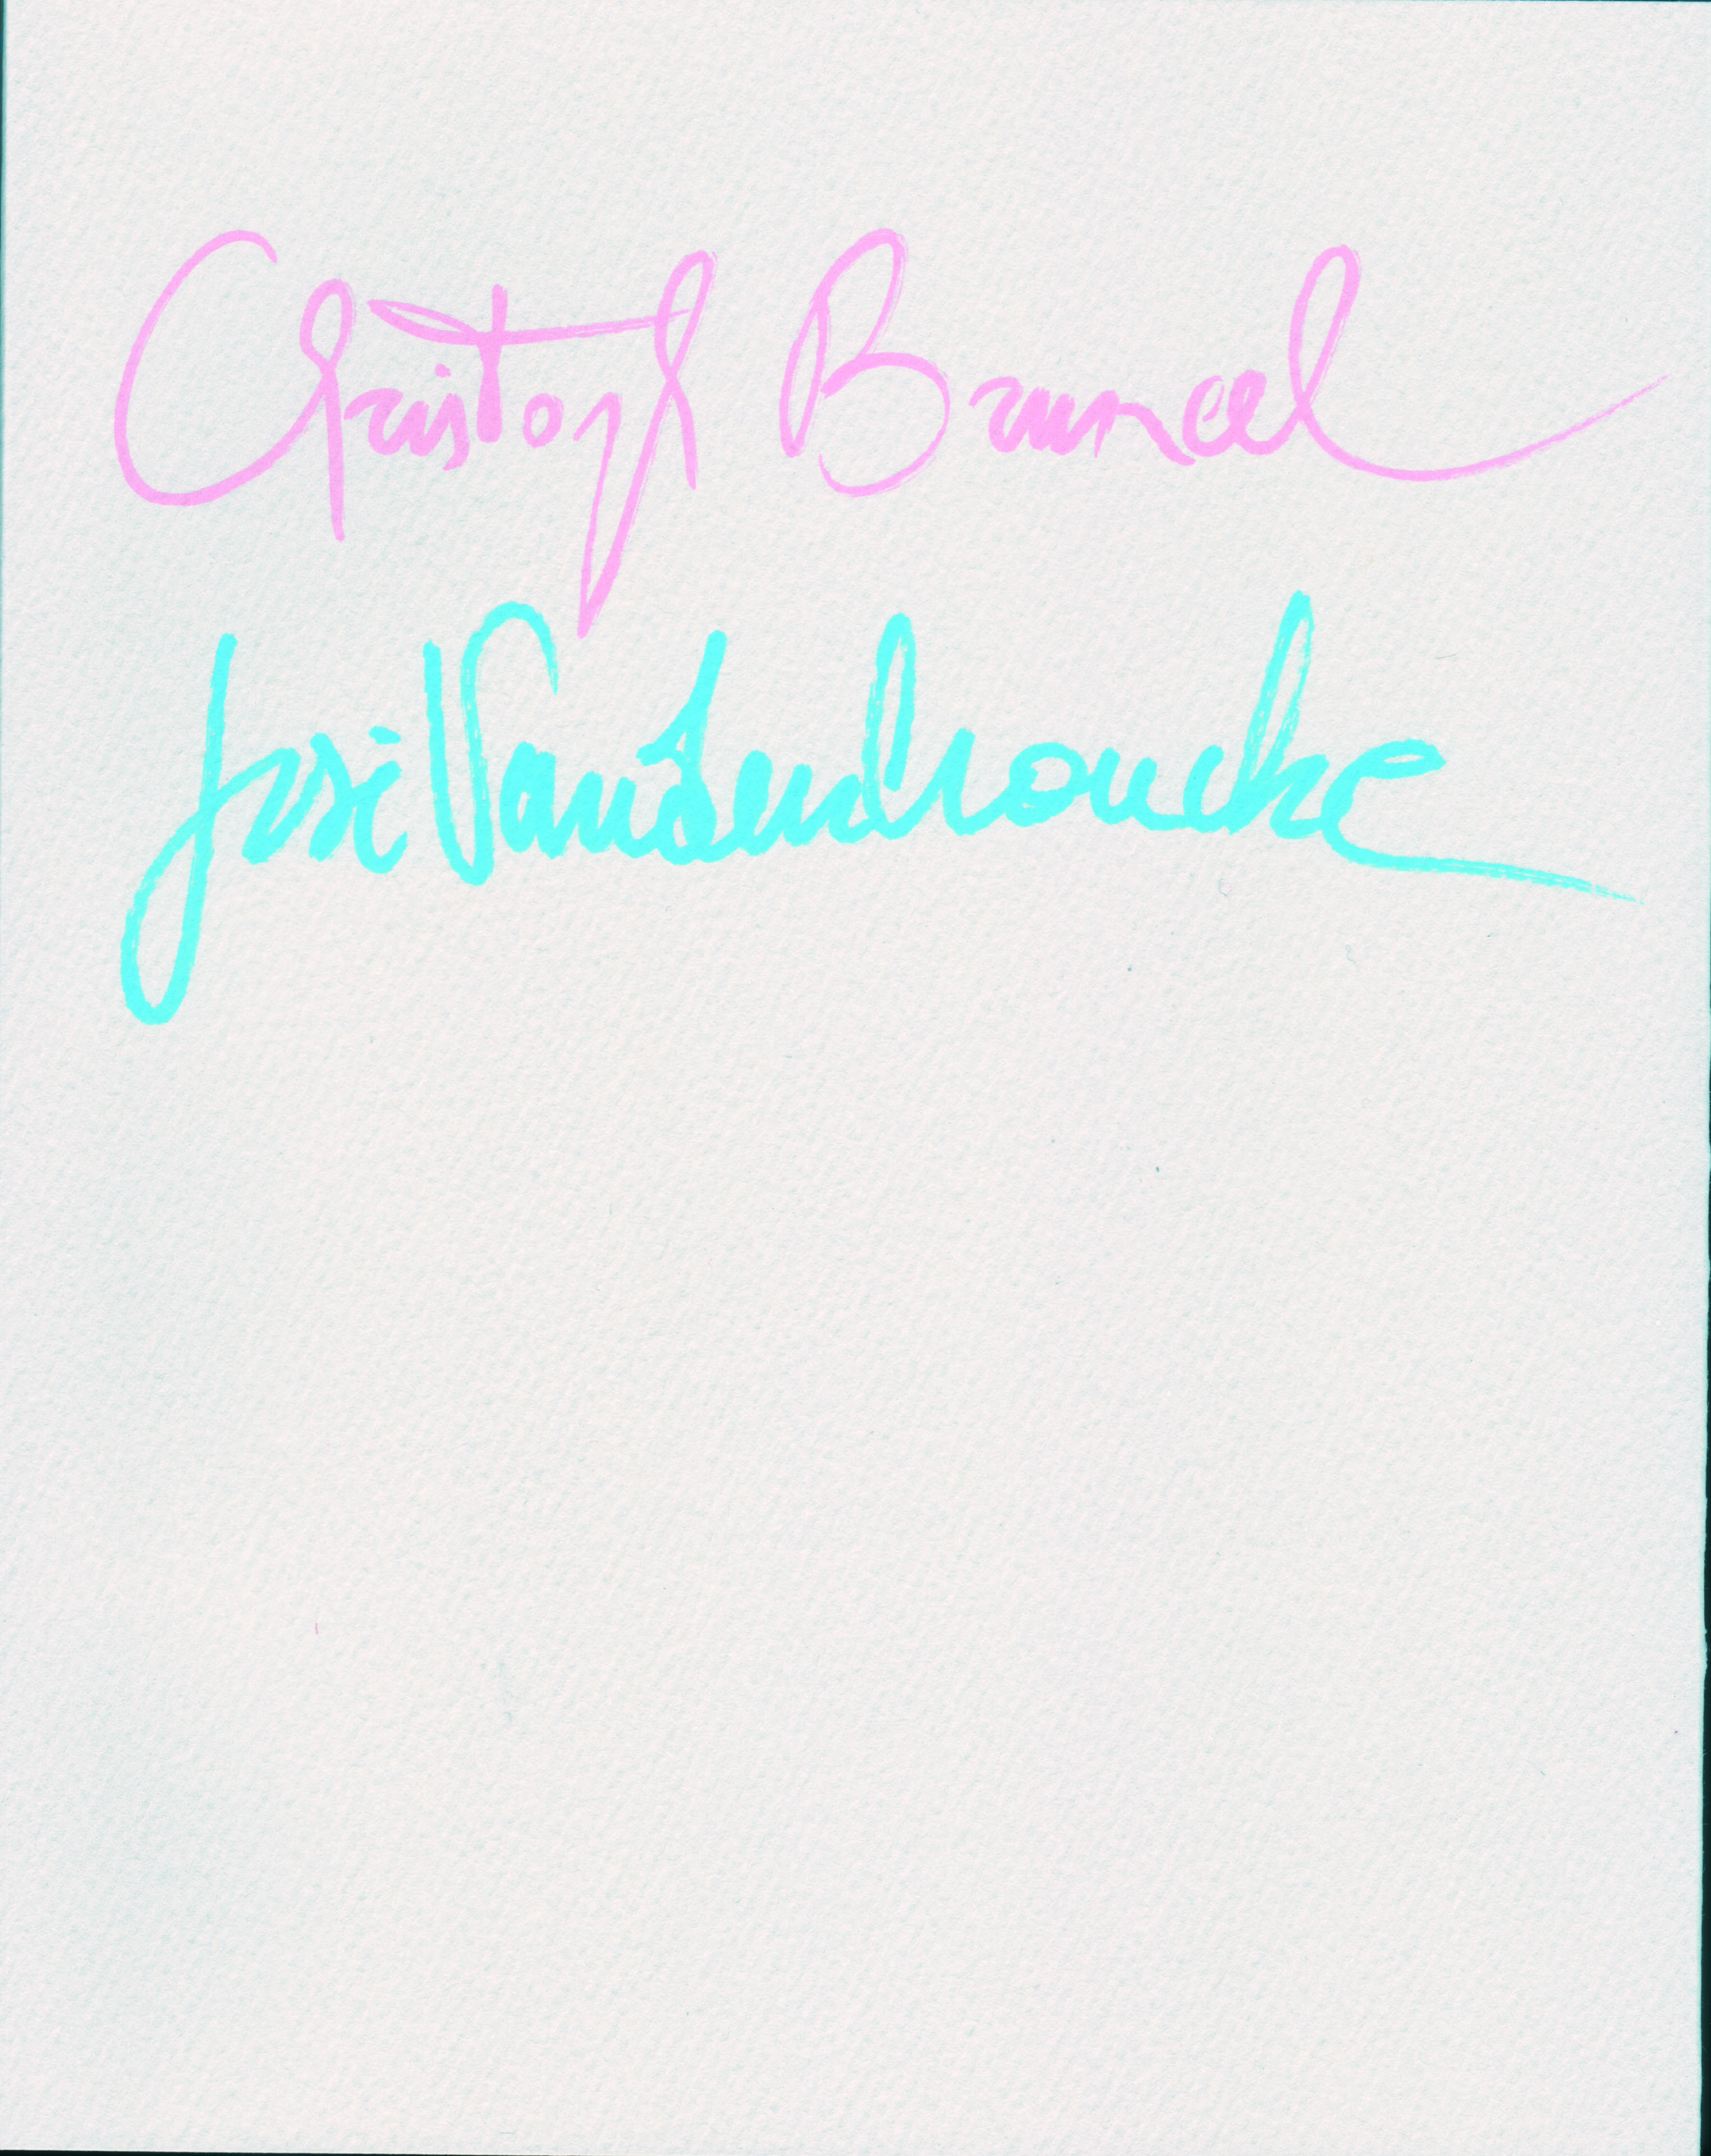 Christoph Bruneel
José Vandenbroucke